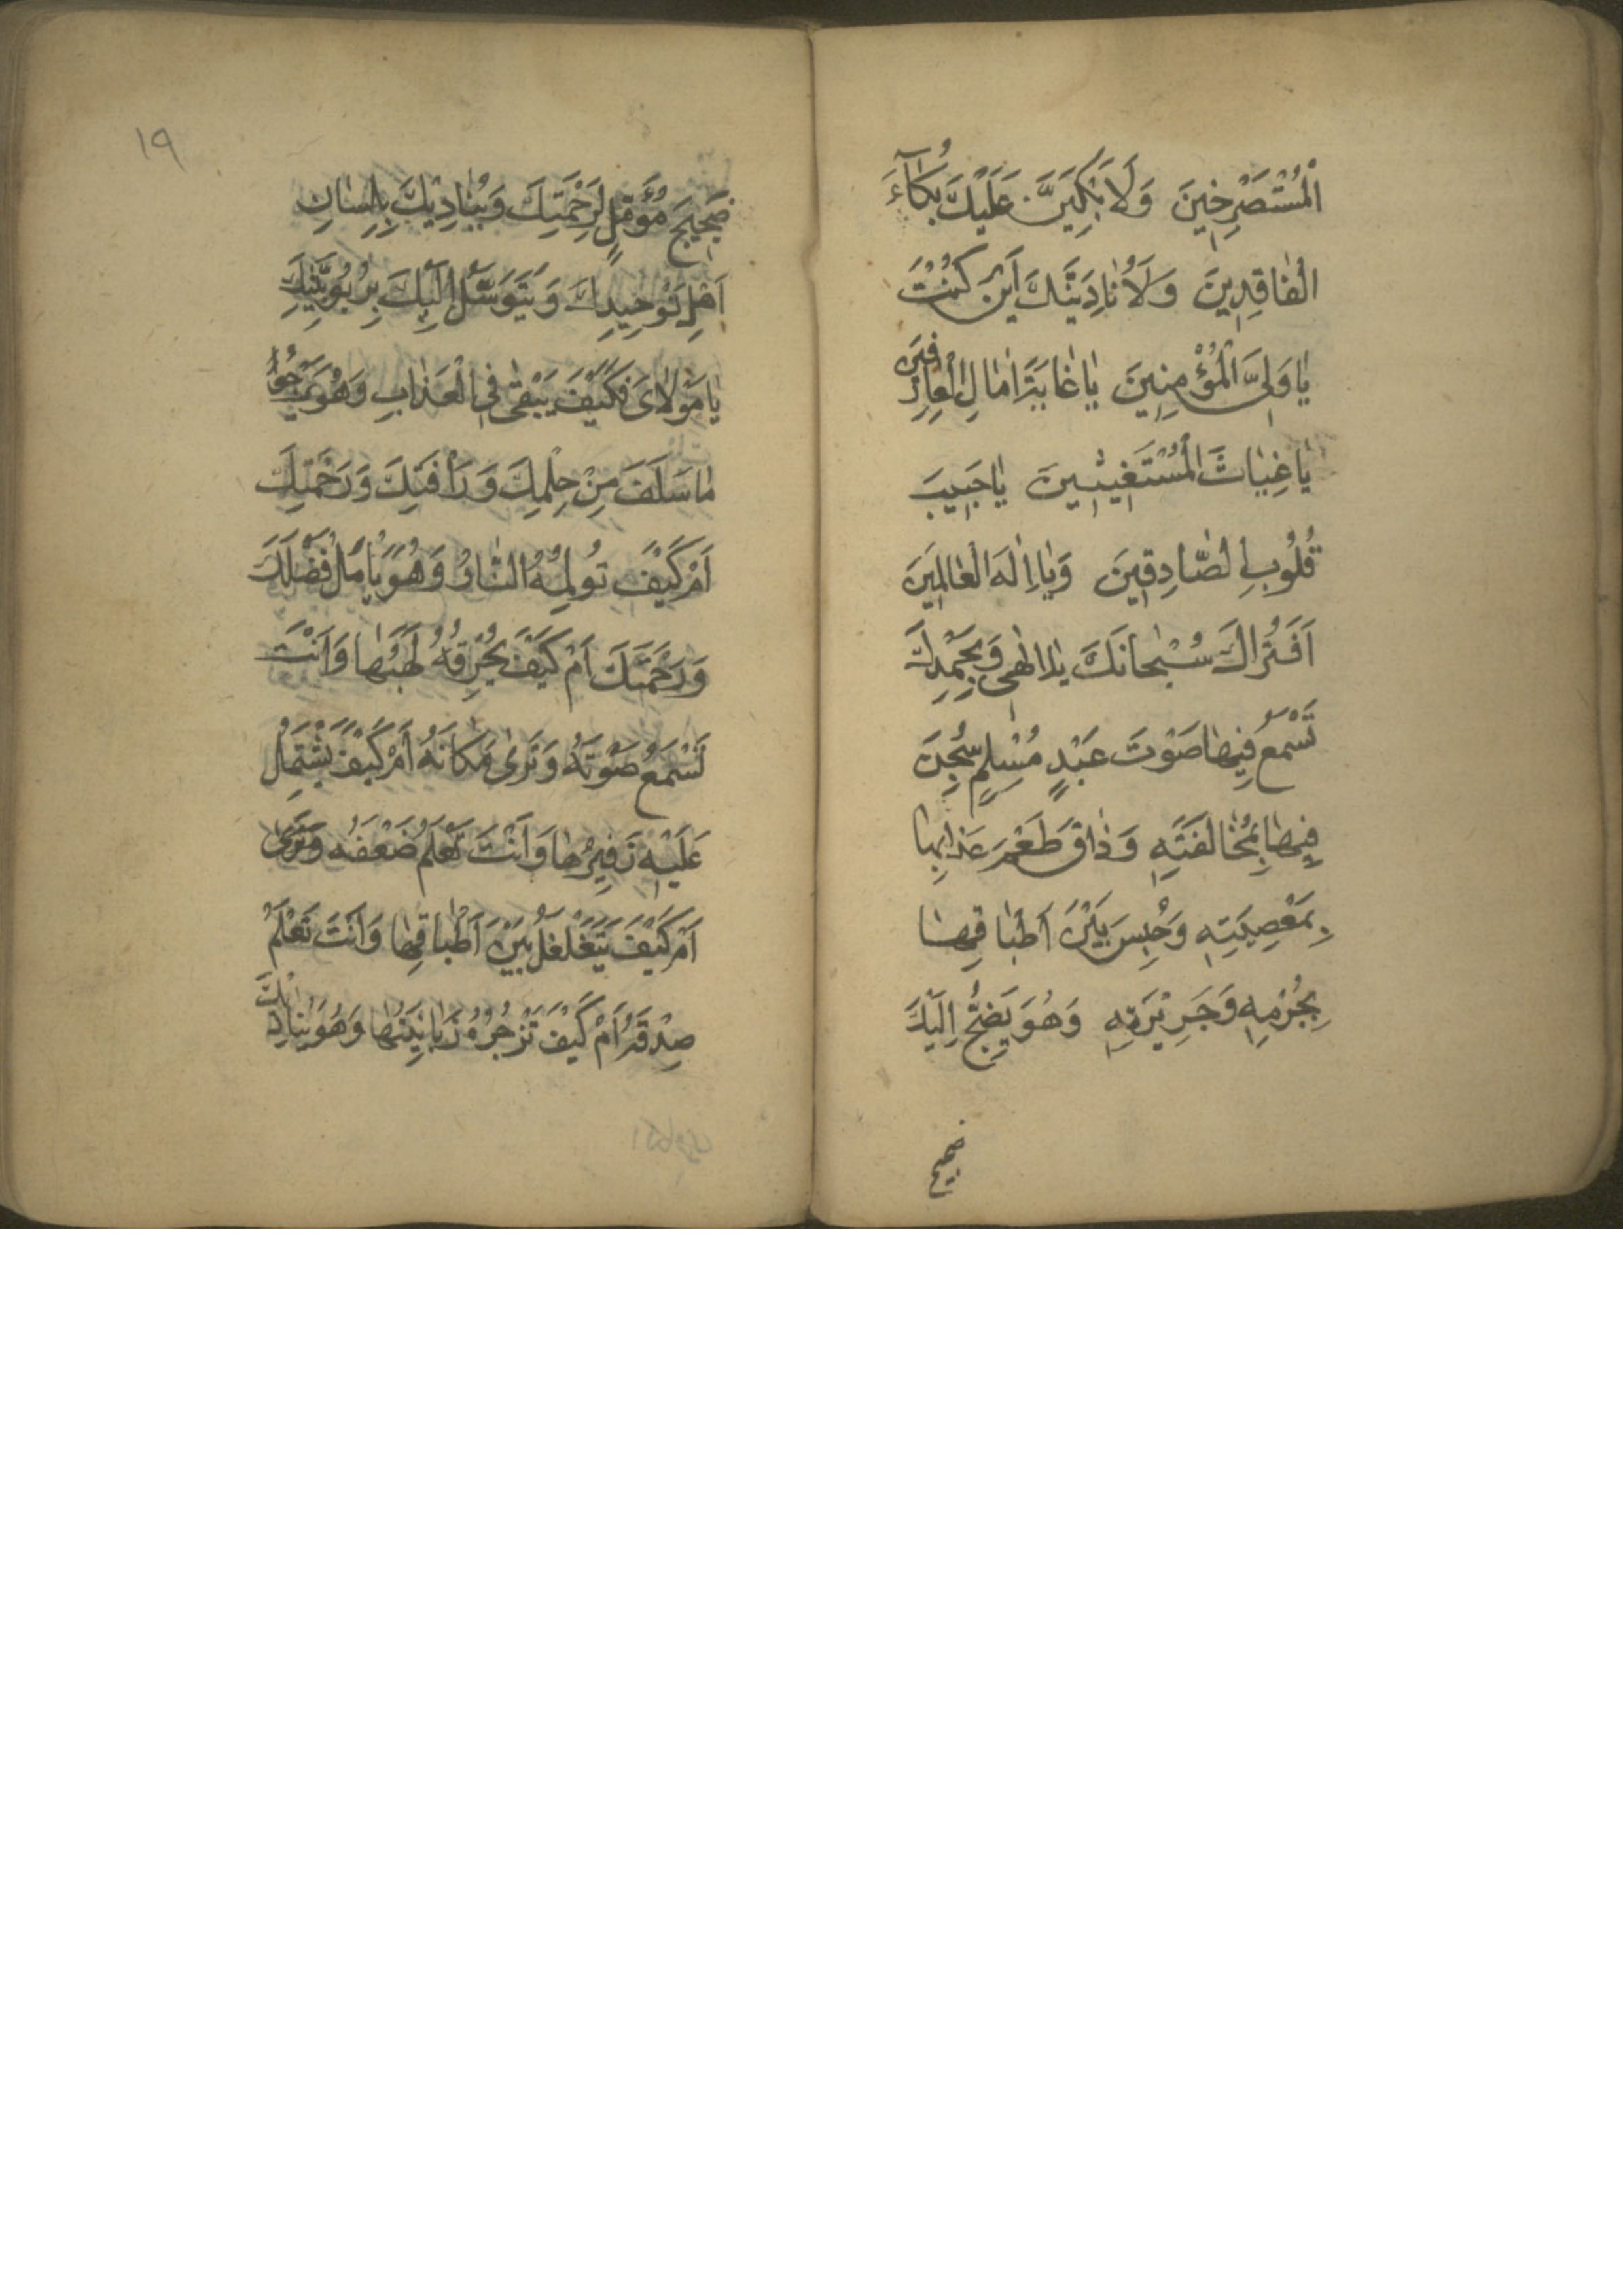 الْمُسْتَصْرِخِينَ وَلَاَبْكِيَنَّ عَلَيْكَ بُكَاۤءَ
الْفَاقِدِينَ وَلَاُنَادِيَنَّكَ اَيْنَ كُنْتَ
يَا وَلِيَّ الْمُؤْمِنِينَ يَا غَايَةَ اٰمَالِ الْعَارِفِينَ
يَا غِيَاثَ الْمُسْتَغِيثِينَ يَا حَبِيبَ
قُلُوبِ الصَّادِقِينَ وَيَا اِلٰهَ الْعَالَمِينَ
اَفَتُرَاكَ سُبْحَانَكَ يَا اِلٰهِي وَبِحَمْدِكَ
تَسْمَعُ فِيهَا صَوْتَ عَبْدٍ مُسْلِمٍ سُجِنَ
فِيهَا بِمُخَالَفَتِهِ وَذَاقَ طَعْمَ عَذَابِهَا
بِمَعْصِيَتِهِ وَحُبِسَ بَيْنَ اَطْبَاقِهَا
بِجُرْمِهِ وَجَرِيرَتِهِ وَهُوَ يَضِجُّ اِلَيْكَ
ضجيج
١٩
ضَجِيجَ مُؤَمِّلٍ لِرَحْمَتِكَ وَيُنَادِيكَ بِلِسَانِ
اَهْلِ تَوْحِيدِكَ وَيَتَوَسَّلُ اِلَيْكَ بِرُبُوبِيَّتِكَ
يَا مَوْلَايَ فَكَيْفَ يَبْقَى فِي الْعَذَابِ وَهُوَ يَرْجُوا
مَا سَلَفَ مِنْ حِلْمِكَ وَرَأْفَتِكَ وَرَحْمَتِكَ
اَمْ كَيْفَ تُولِمُهُ النَّارُ وَهُوَ يَاْمَلُ فَضْلَكَ
وَرَحْمَتَكَ اَمْ كَيْفَ يُحْرِقُهُ لَهَبُهَا وَاَنْتَ
تَسْمَعُ صَوْتَهُ وَتَرَى مَكَانَهُ اَمْ كَيْفَ يَشْتَمِلُ
عَلَيْهِ زَفِيرُهَا وَاَنْتَ تَعْلَمُ ضَعْفَهُ وَتَرَى
اَمْ كَيْفَ يَتَغَلْغَلُ بَيْنَ اَطْبَاقِهَا وَاَنْتَ تَعْلَمُ
صِدْقَهُ اَمْ كَيْفَ تَزْجُرُهُ زَبَانِيَتُهَا وَهُوَ يُنَادِيكَ